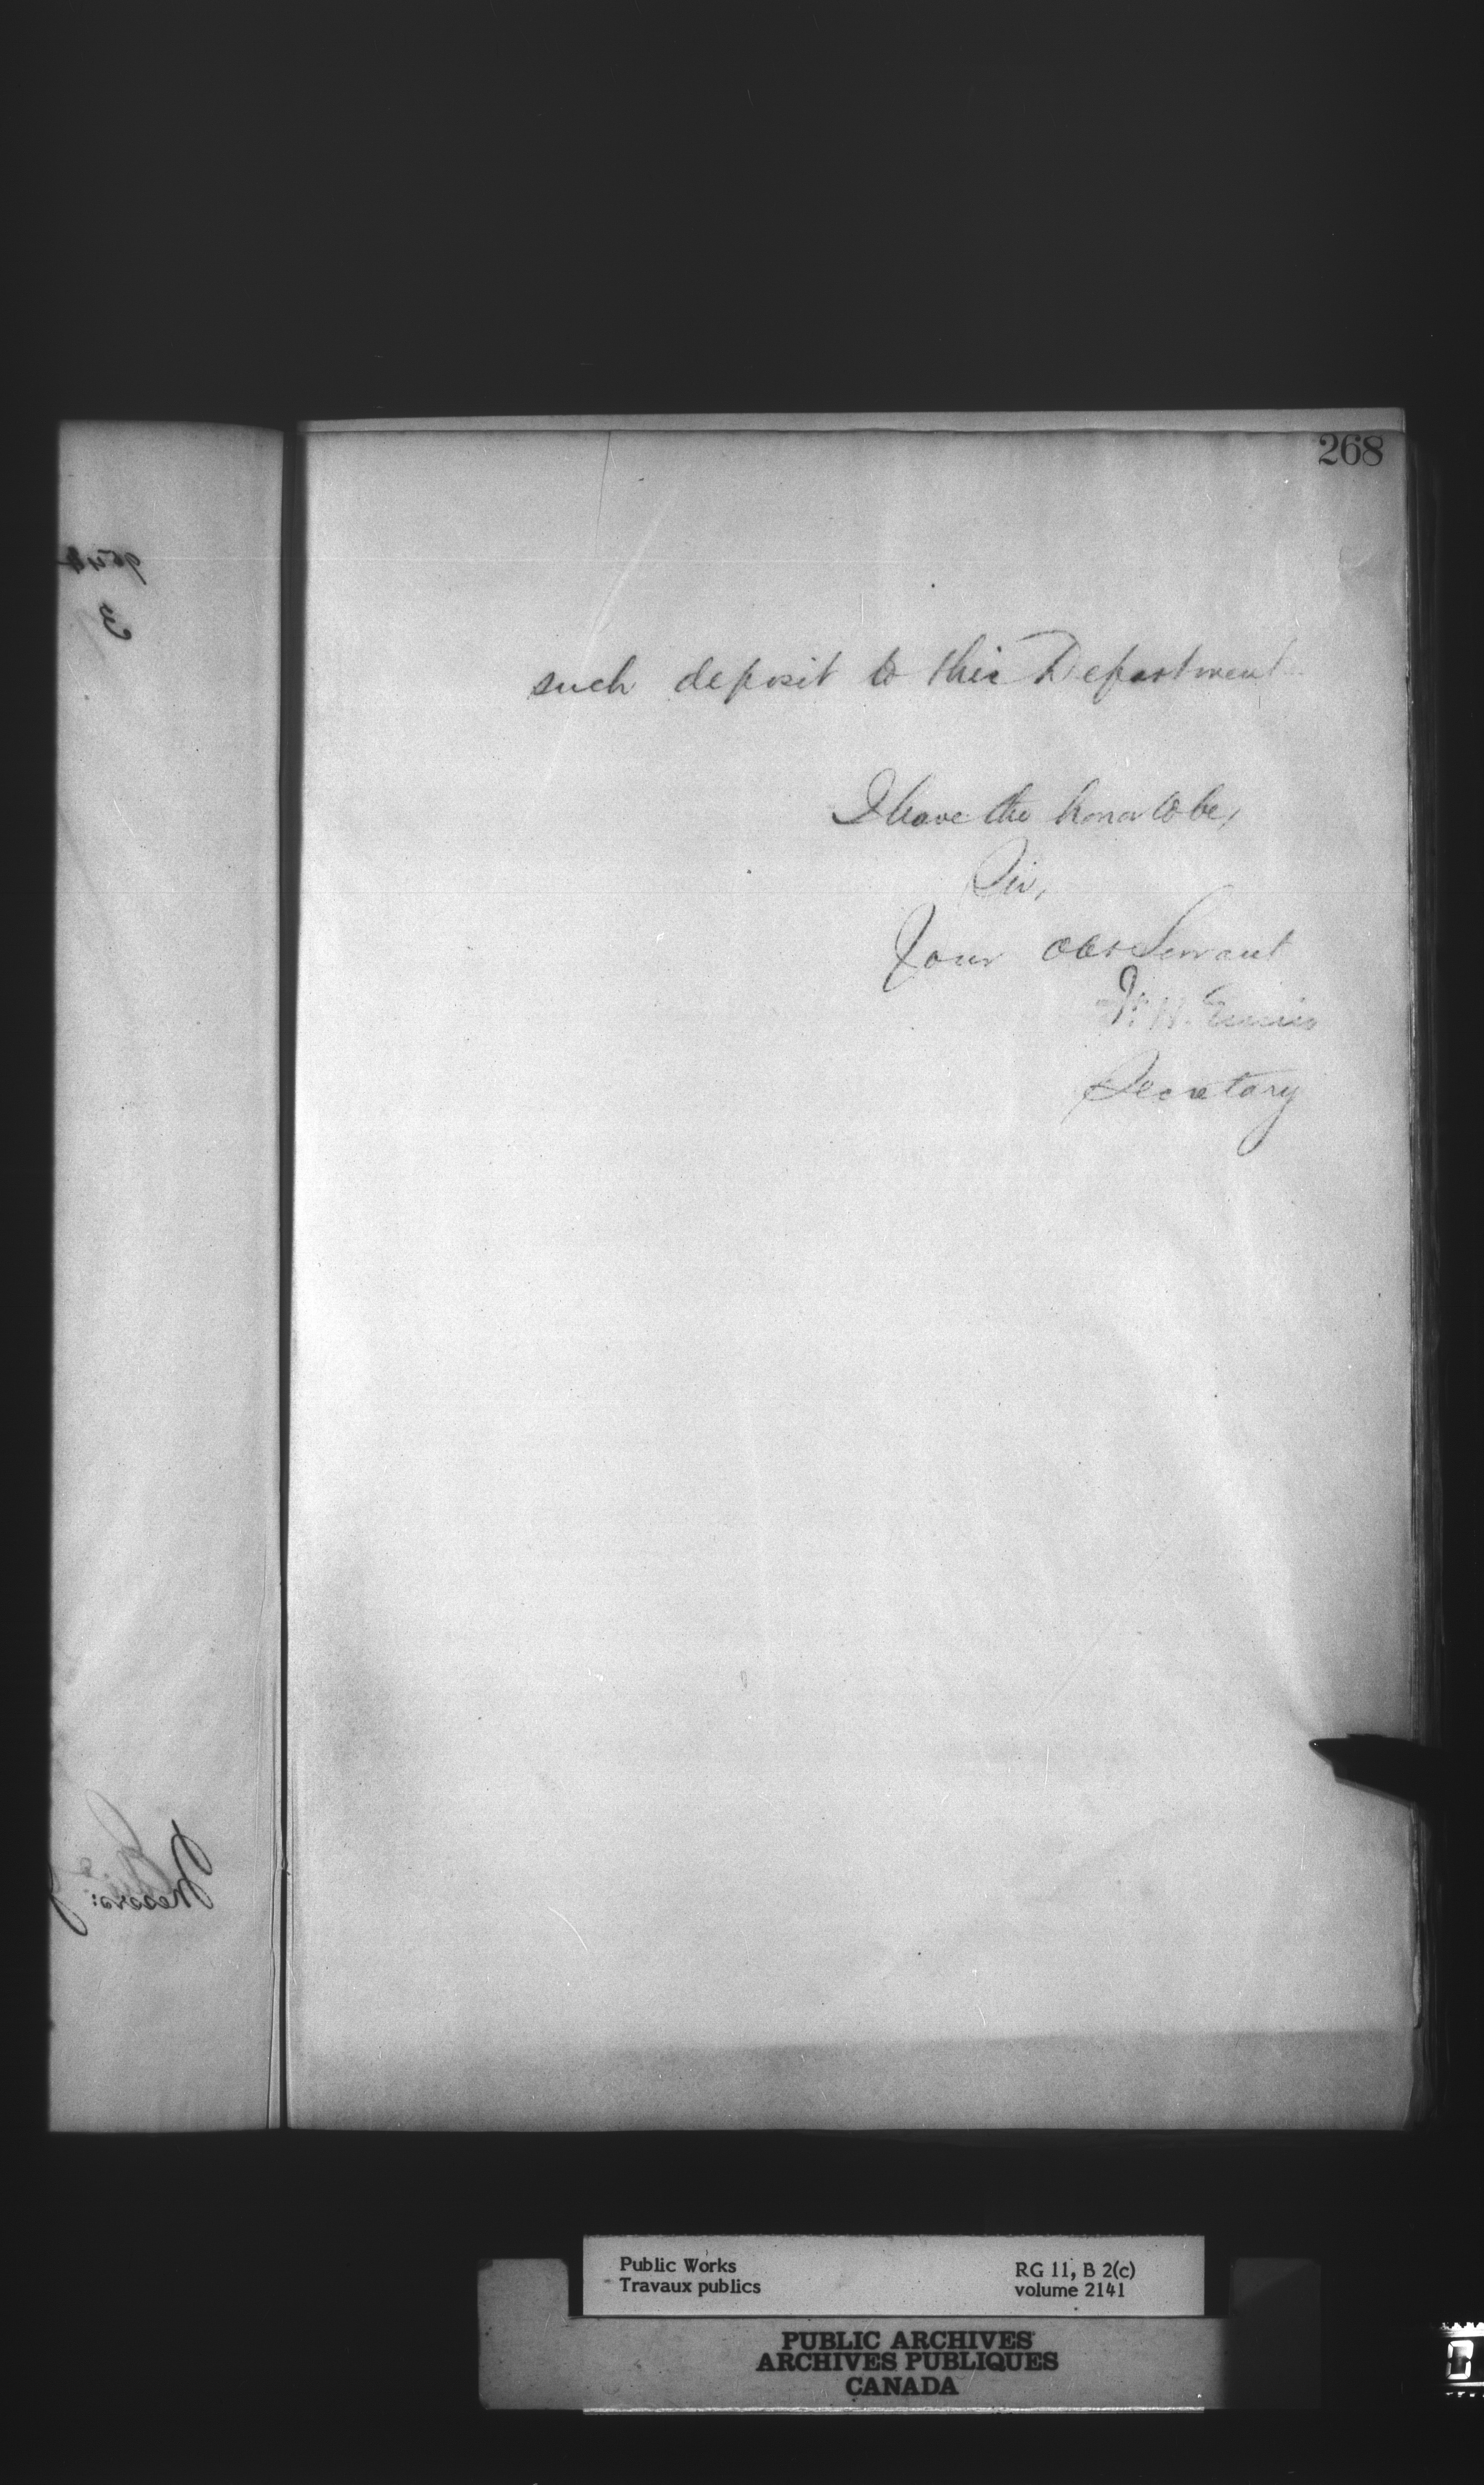 268
such deposit to this Department
I have the honor to be,
Sir,
Your Obt Servant
F. H. Ennis
Secretary
Messrs:
Public Works
Travaux publics
RG 11, B 2(c)
volume 2141
PUBLIC ARCHIVES
ARCHIVES PUBLIQUES
CANADA